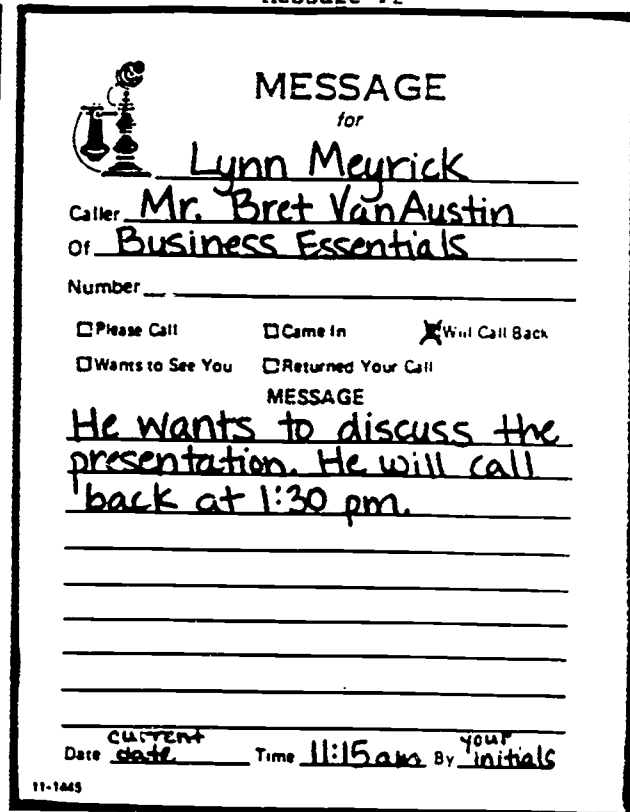 MESSAGE
for
Lynn Meyrick
Caller Mr. Bret VanAustin
Of Business Essentials
Number
Please Call Came In Will Call Back
Wants to See You Returned Your Call
MESSAGE
He wants to discuss the
presentation. He will call
back at 1:30 pm.
current your
Date date Time 11:15 am By initials
11-1445